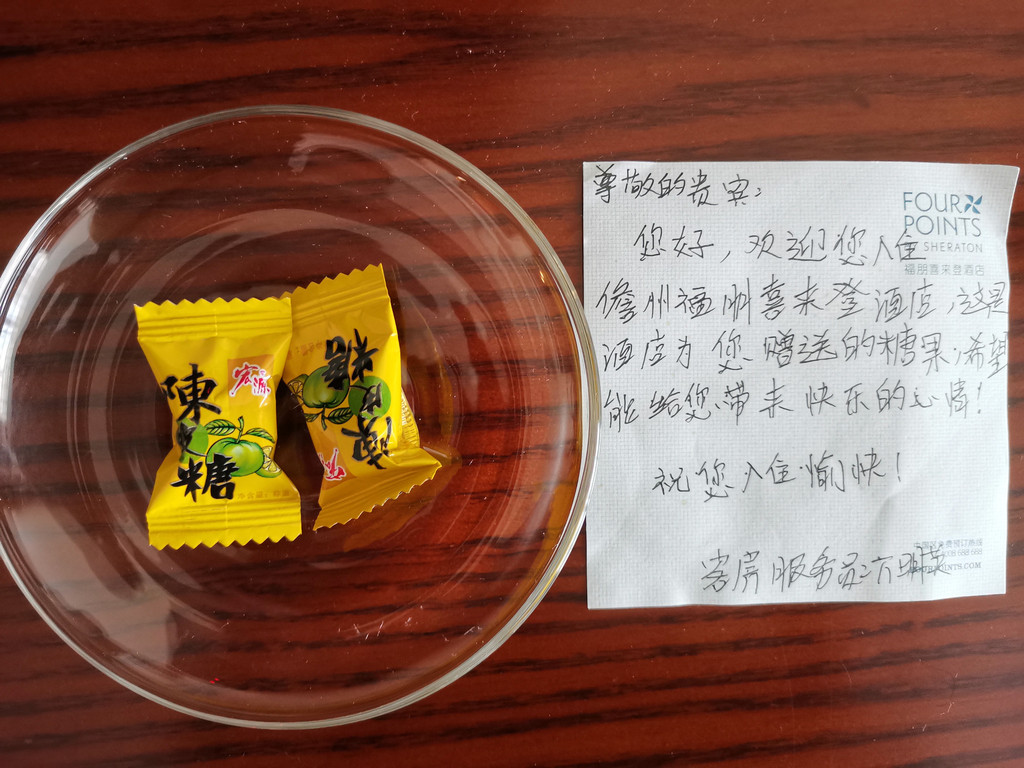 陳皮糖
宏源
陳皮糖
尊敬的贵宾：
FOUR
POINTS
SHERATON
福朋喜来登酒店
您好，欢迎您入住
儋州福朋喜来登酒店，这是
酒店为您赠送的糖果，希望
能给您带来快乐的心情！
祝您入住愉快！
中国区免费预订热线
POINTS.COM
客房服务员：方明英